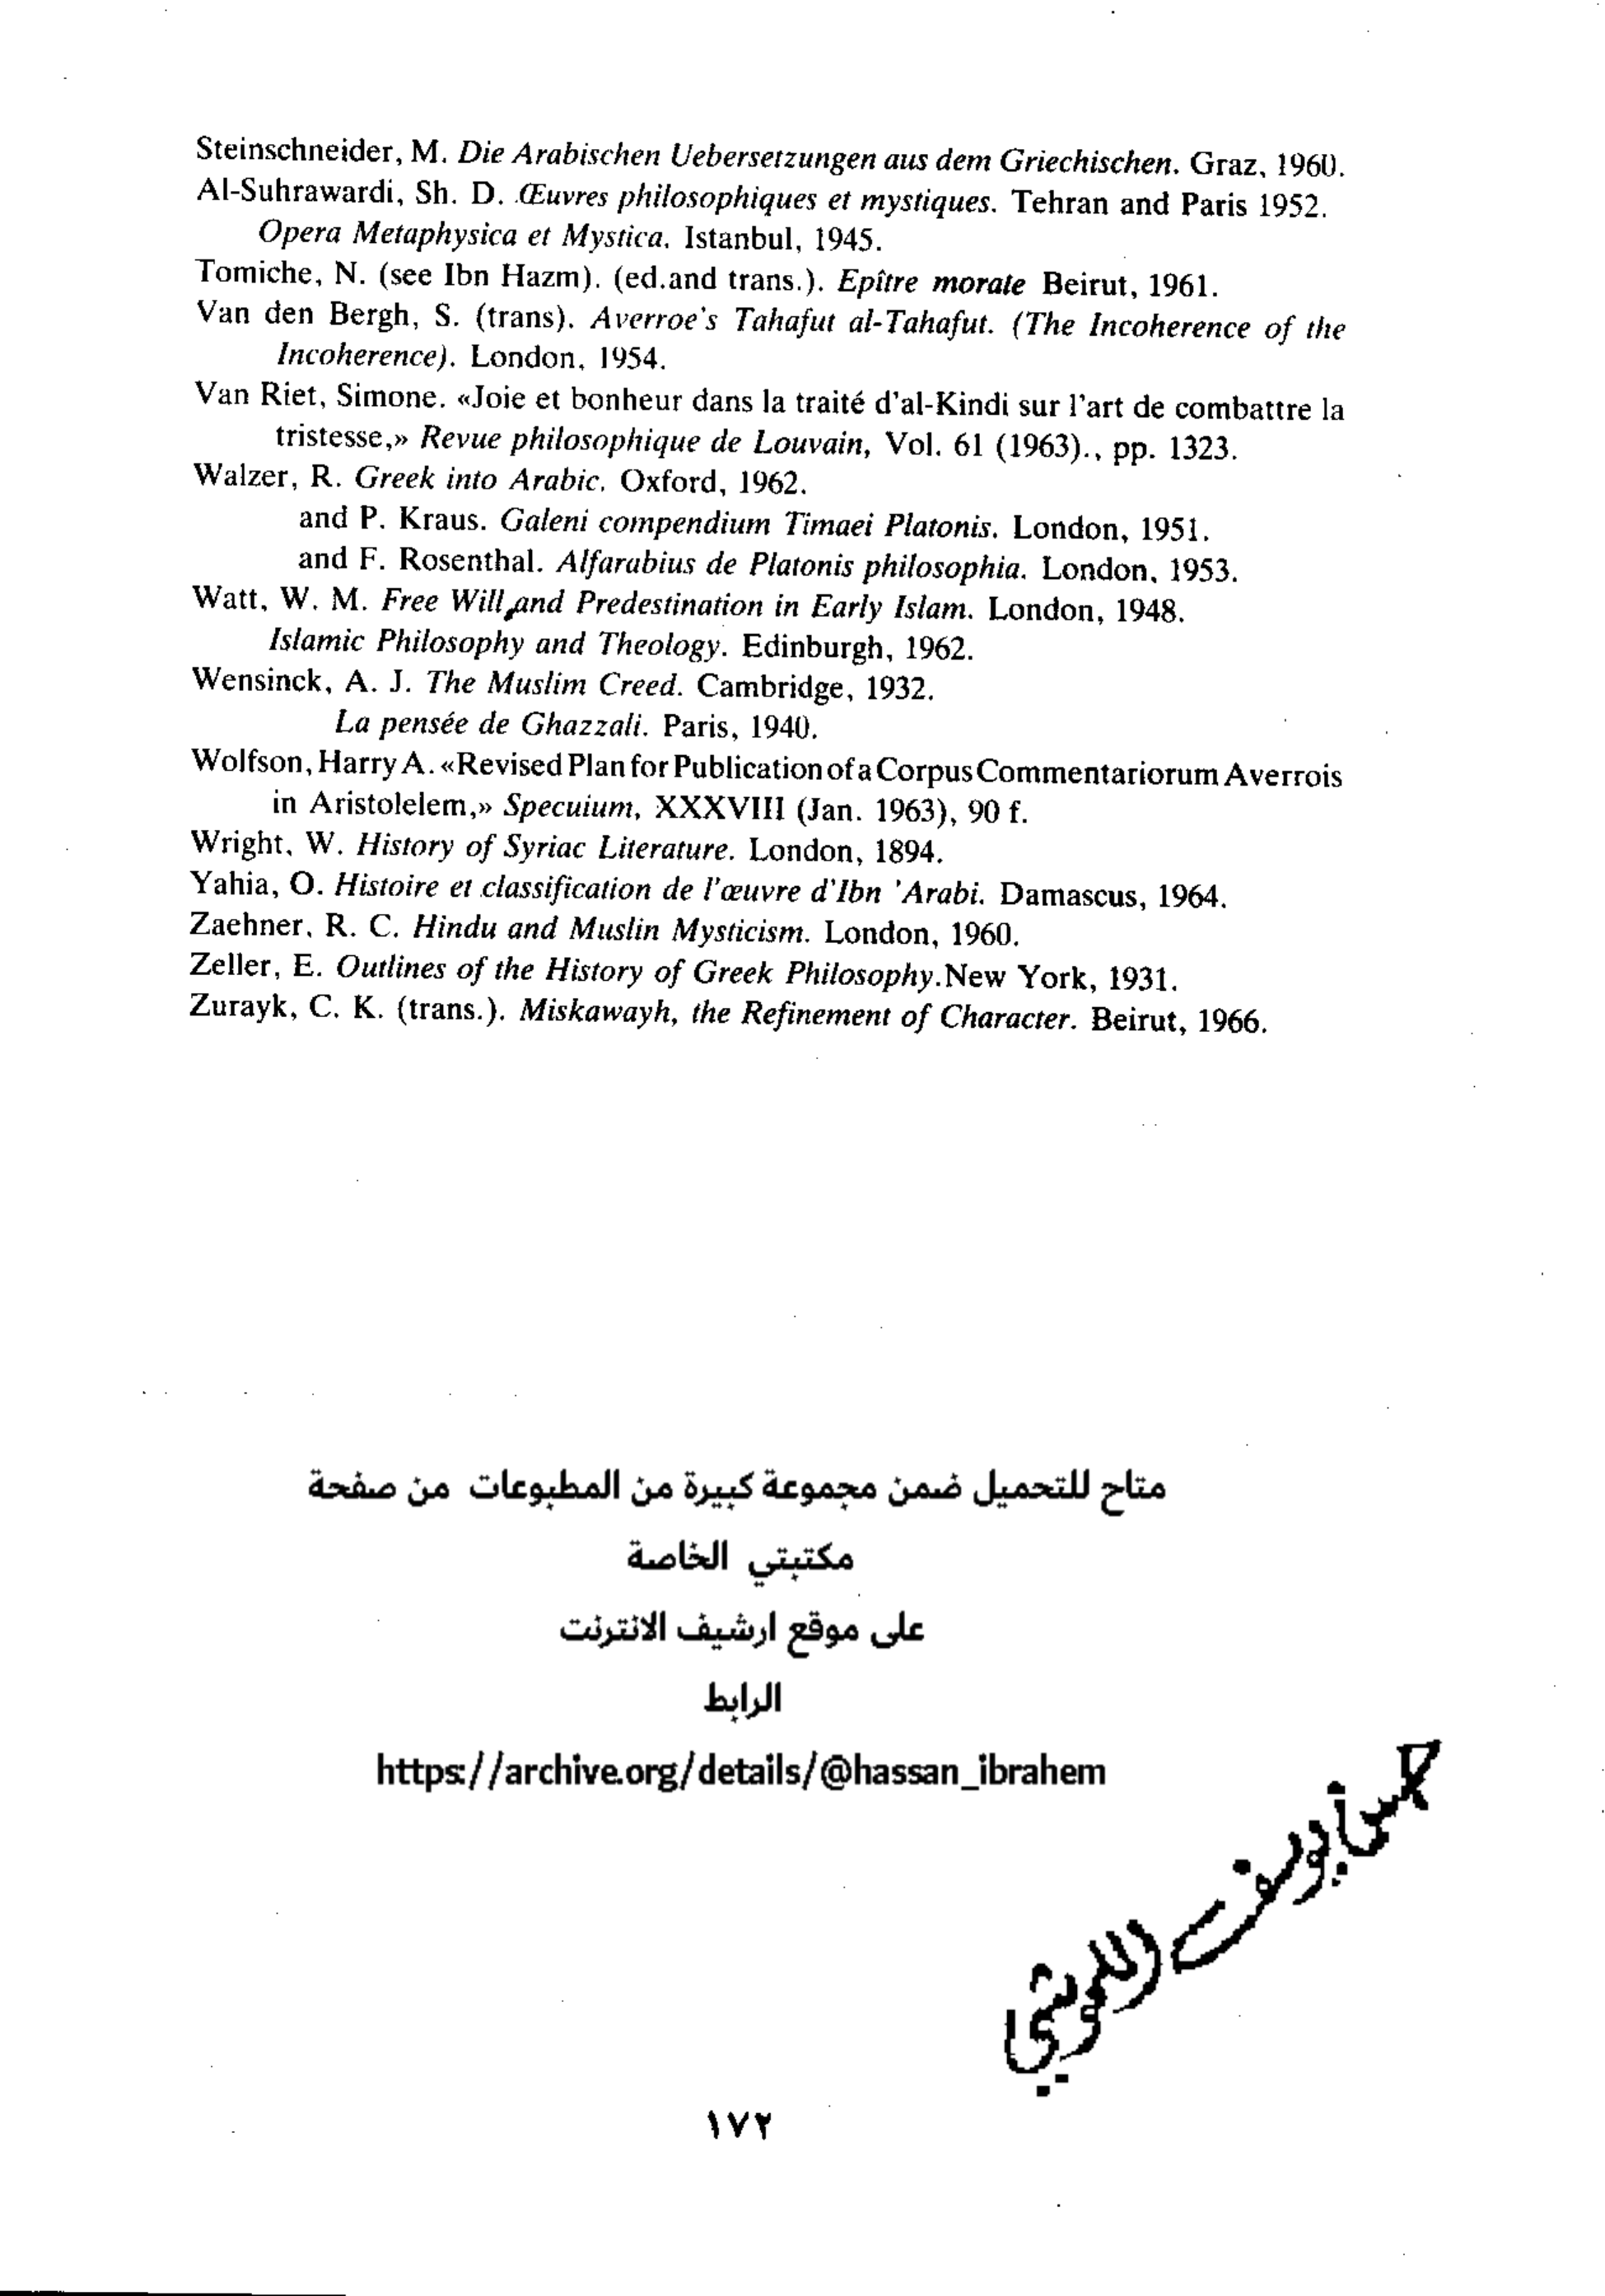 Steinschneider, M. Die Arabischen Uebersetzungen aus dem Griechischen. Graz, 1960.
Al-Suhrawardi, Sh. D. Œuvres philosophiques et mystiques. Tehran and Paris 1952.
Opera Metaphysica et Mystica. Istanbul, 1945.
Tomiche, N. (see Ibn Hazm). (ed.and trans.). Epître morate Beirut, 1961.
Van den Bergh, S. (trans). Averroe's Tahafut al-Tahafut. (The Incoherence of the
Incoherence). London, 1954.
Van Riet, Simone. «Joie et bonheur dans la traité d'al-Kindi sur l'art de combattre la
tristesse,» Revue philosophique de Louvain, Vol. 61 (1963)., pp. 1323.
Walzer, R. Greek into Arabic. Oxford, 1962.
and P. Kraus. Galeni compendium Timaei Platonis. London, 1951.
and F. Rosenthal. Alfarabius de Platonis philosophia. London, 1953.
Watt, W. M. Free Will and Predestination in Early Islam. London, 1948.
Islamic Philosophy and Theology. Edinburgh, 1962.
Wensinck, A. J. The Muslim Creed. Cambridge, 1932.
La pensée de Ghazzali. Paris, 1940.
Wolfson, Harry A. «Revised Plan for Publication of a Corpus Commentariorum Averrois
in Aristolelem,» Specuium, XXXVIII (Jan. 1963), 90 f.
Wright, W. History of Syriac Literature. London, 1894.
Yahia, O. Histoire et classification de l'œuvre d'Ibn 'Arabi. Damascus, 1964.
Zaehner, R. C. Hindu and Muslin Mysticism. London, 1960.
Zeller, E. Outlines of the History of Greek Philosophy.New York, 1931.
Zurayk, C. K. (trans.). Miskawayh, the Refinement of Character. Beirut, 1966.
متاح للتحميل ضمن مجموعة كبيرة من المطبوعات من صفحة
مكتبتي الخاصة
على موقع ارشيف الانترنت
الرابط
https://archive.org/details/@hassan_ibrahem
١٧٢